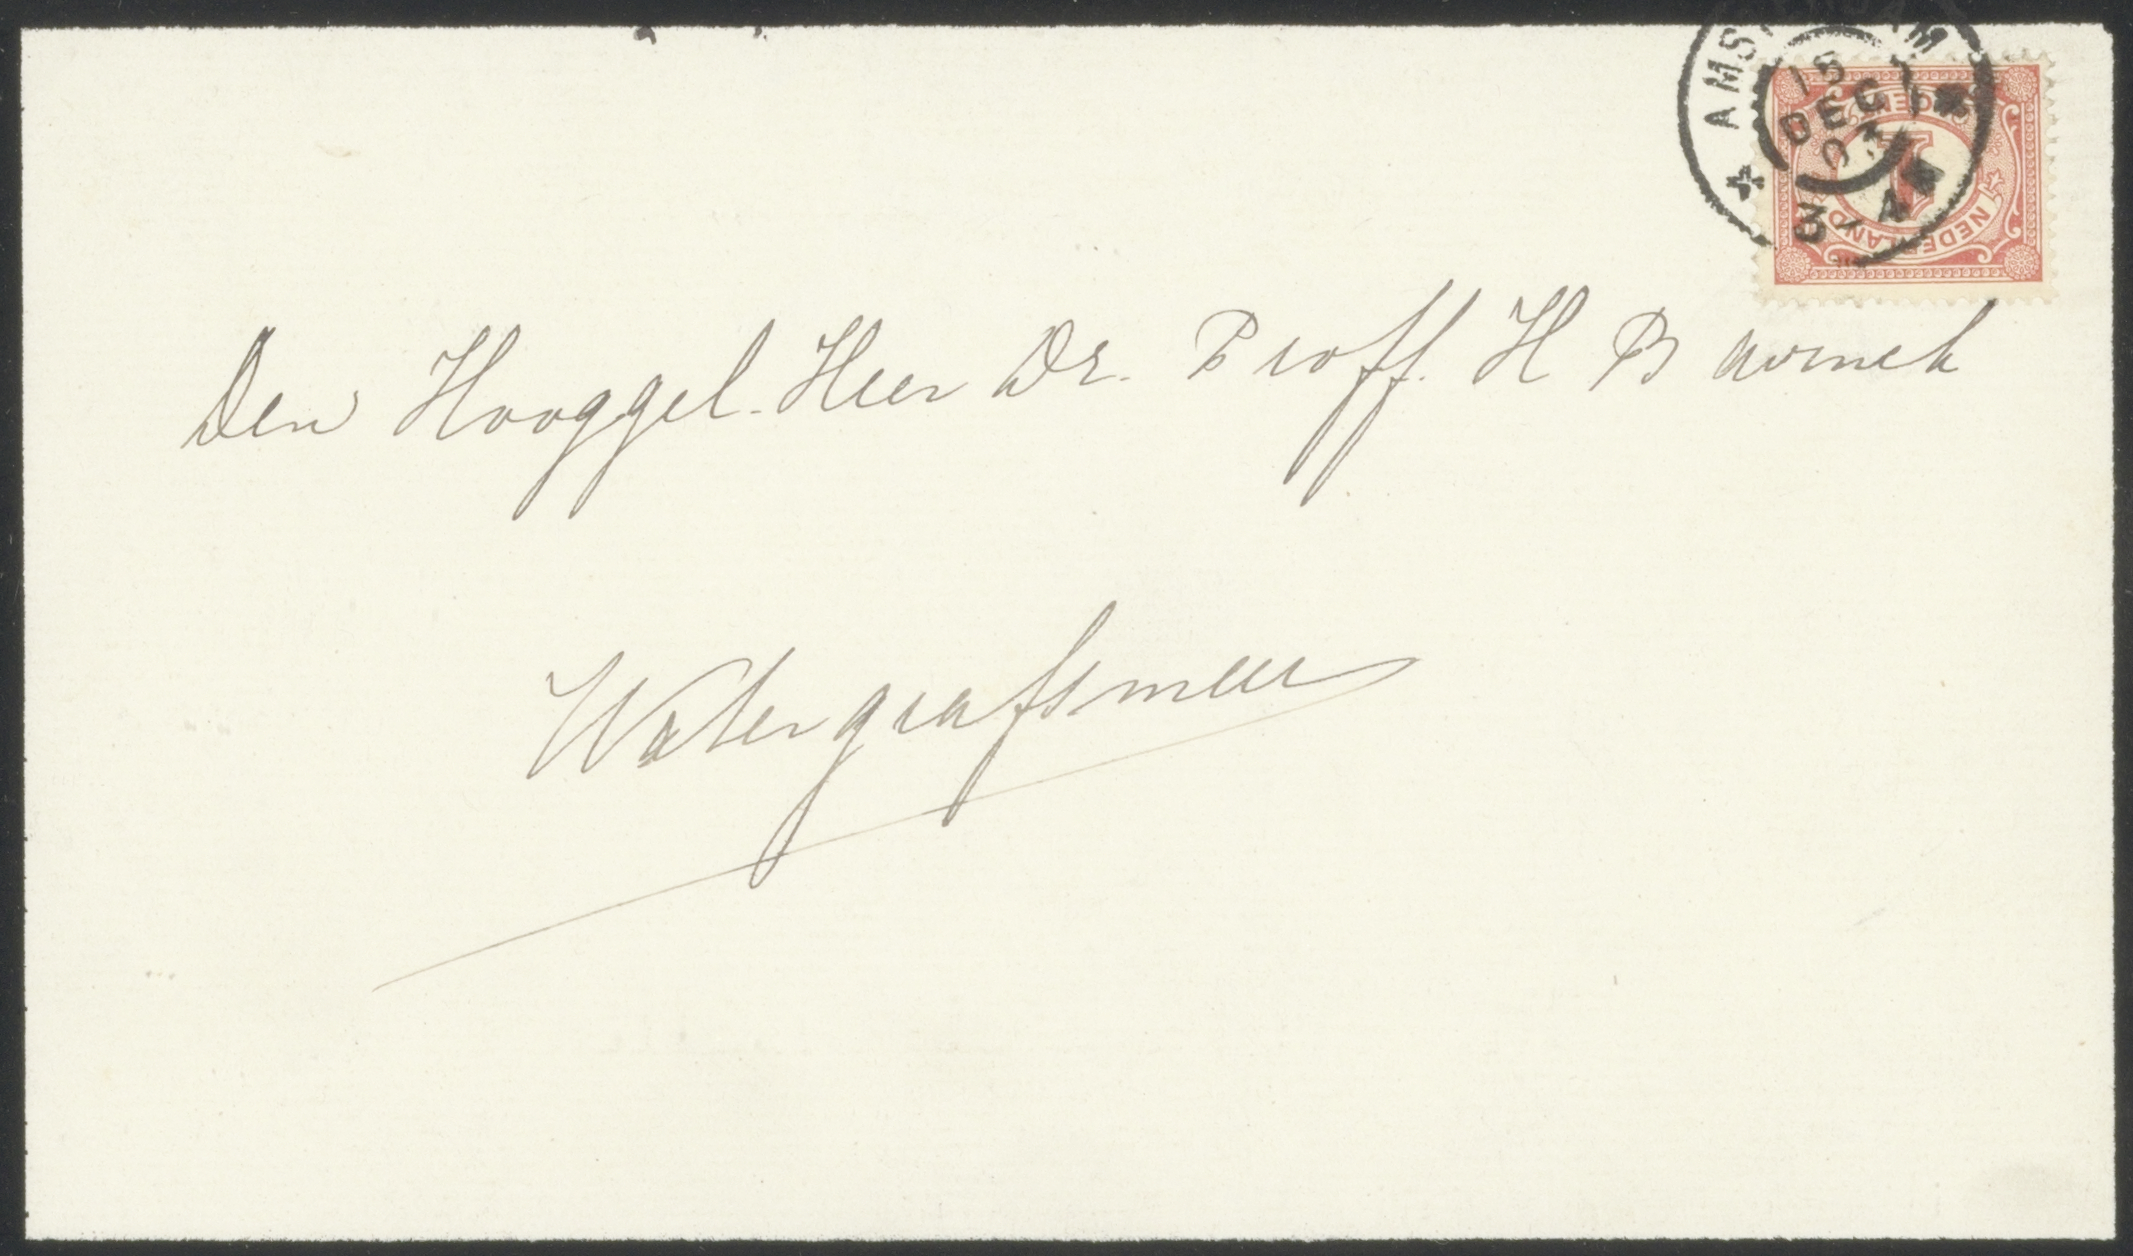 AMSTERDAM
15
DEC
03
3-4
1 NEDERLAND
Den Hooggel. Heer Dr. Proff. H Bavinck
Watergrafsmeer